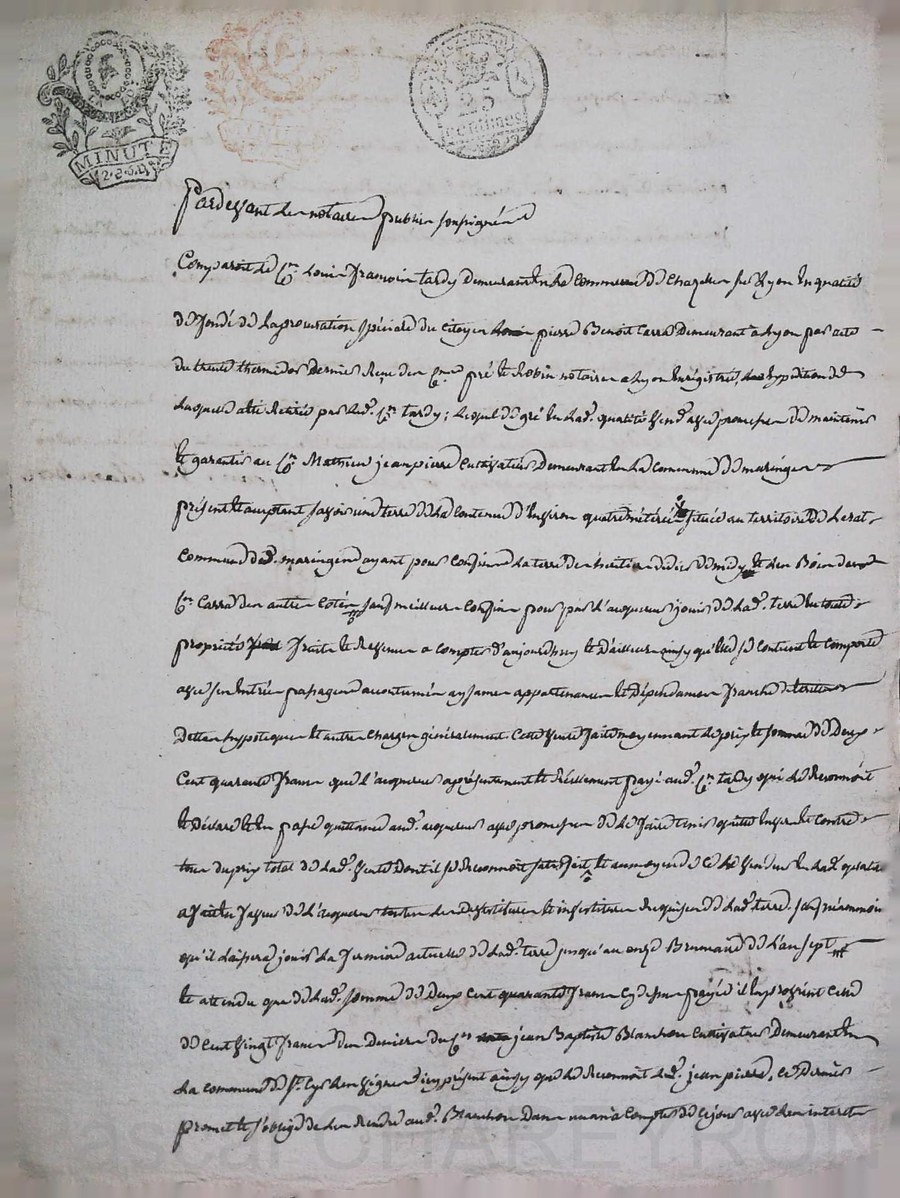 MINUTE
25
centimes
Pardevant les notaires publics soussignés
Comparoit le Cen Louis François tardy demeurant en la commune de Chazelles sur Lyon en qualité
de fondé de la procuration spéciale du citoyen pierre Benoit Carra demeurant a Lyon par acte
du trente thermidor dernier Reçu des Cens pré et Robin notaires a Lyon Enrégistré, expédition de
laquelle a été Retirée par led. Cen tardy; Lequel de gré en lad. qualité vend avec promesse de maintenir
et garantir au Cen Mathieu jean pierre Cultivateur demeurant en la commune de maringes
présent et acceptant savoir une terre de la contenue d'Environ quatre méterées située au territoire de
commune de maringes ayant pour confins la terre des héritiers de midy, et les Bois dud.
Cen Carra des autres Cotés sauf meilleurs Confins pour par l'acquereur jouir de lad. terre en toute
propriété fruits et Revenus a compter d'aujourdhuy et d'ailleurs ainsy qu'elle se contient et comporte
avec ses Entrées passages accoutumés aysances appartenances et dépendances franche de
dettes hypoteques et autres charges généralement. Cette vente faite moyennant le prix et somme de Deux
Cent quarante francs que l'acquereur a présentement et Réellement payé aud. Cen tardy qui le Reconnoit
et déclare et en passe quittance aud. acquereur avec promesse de le faire tenir quitte Envers et contre
tous du prix total de lad. vente dont il se Reconnoit satisfait, et au moyen de ce le vendeur en lad. qualité
a fait en faveur de l'acquereur toutes les devestitures et investitures Requises de lad. terre. sauf néanmoins
qu'il laissera jouir la fermiere actuelle de lad. terre jusqu'au onze Brumaire de l'an sept
et attendu que de lad. somme de deux cent quarante francs cy dessus payée il en provient celle
de cent vingt francs des deniers du Cen jean Baptiste Blanchon Cultivateur demeurant en
la commune de St. Cyr les vignes icy présent ainsy que le Reconnoit led. jean pierre, ce dernier
promet et s'oblige de les Rendre aud. Blanchon dans un an a compter de ce jour avec les interets
Pascal CHAREYRON